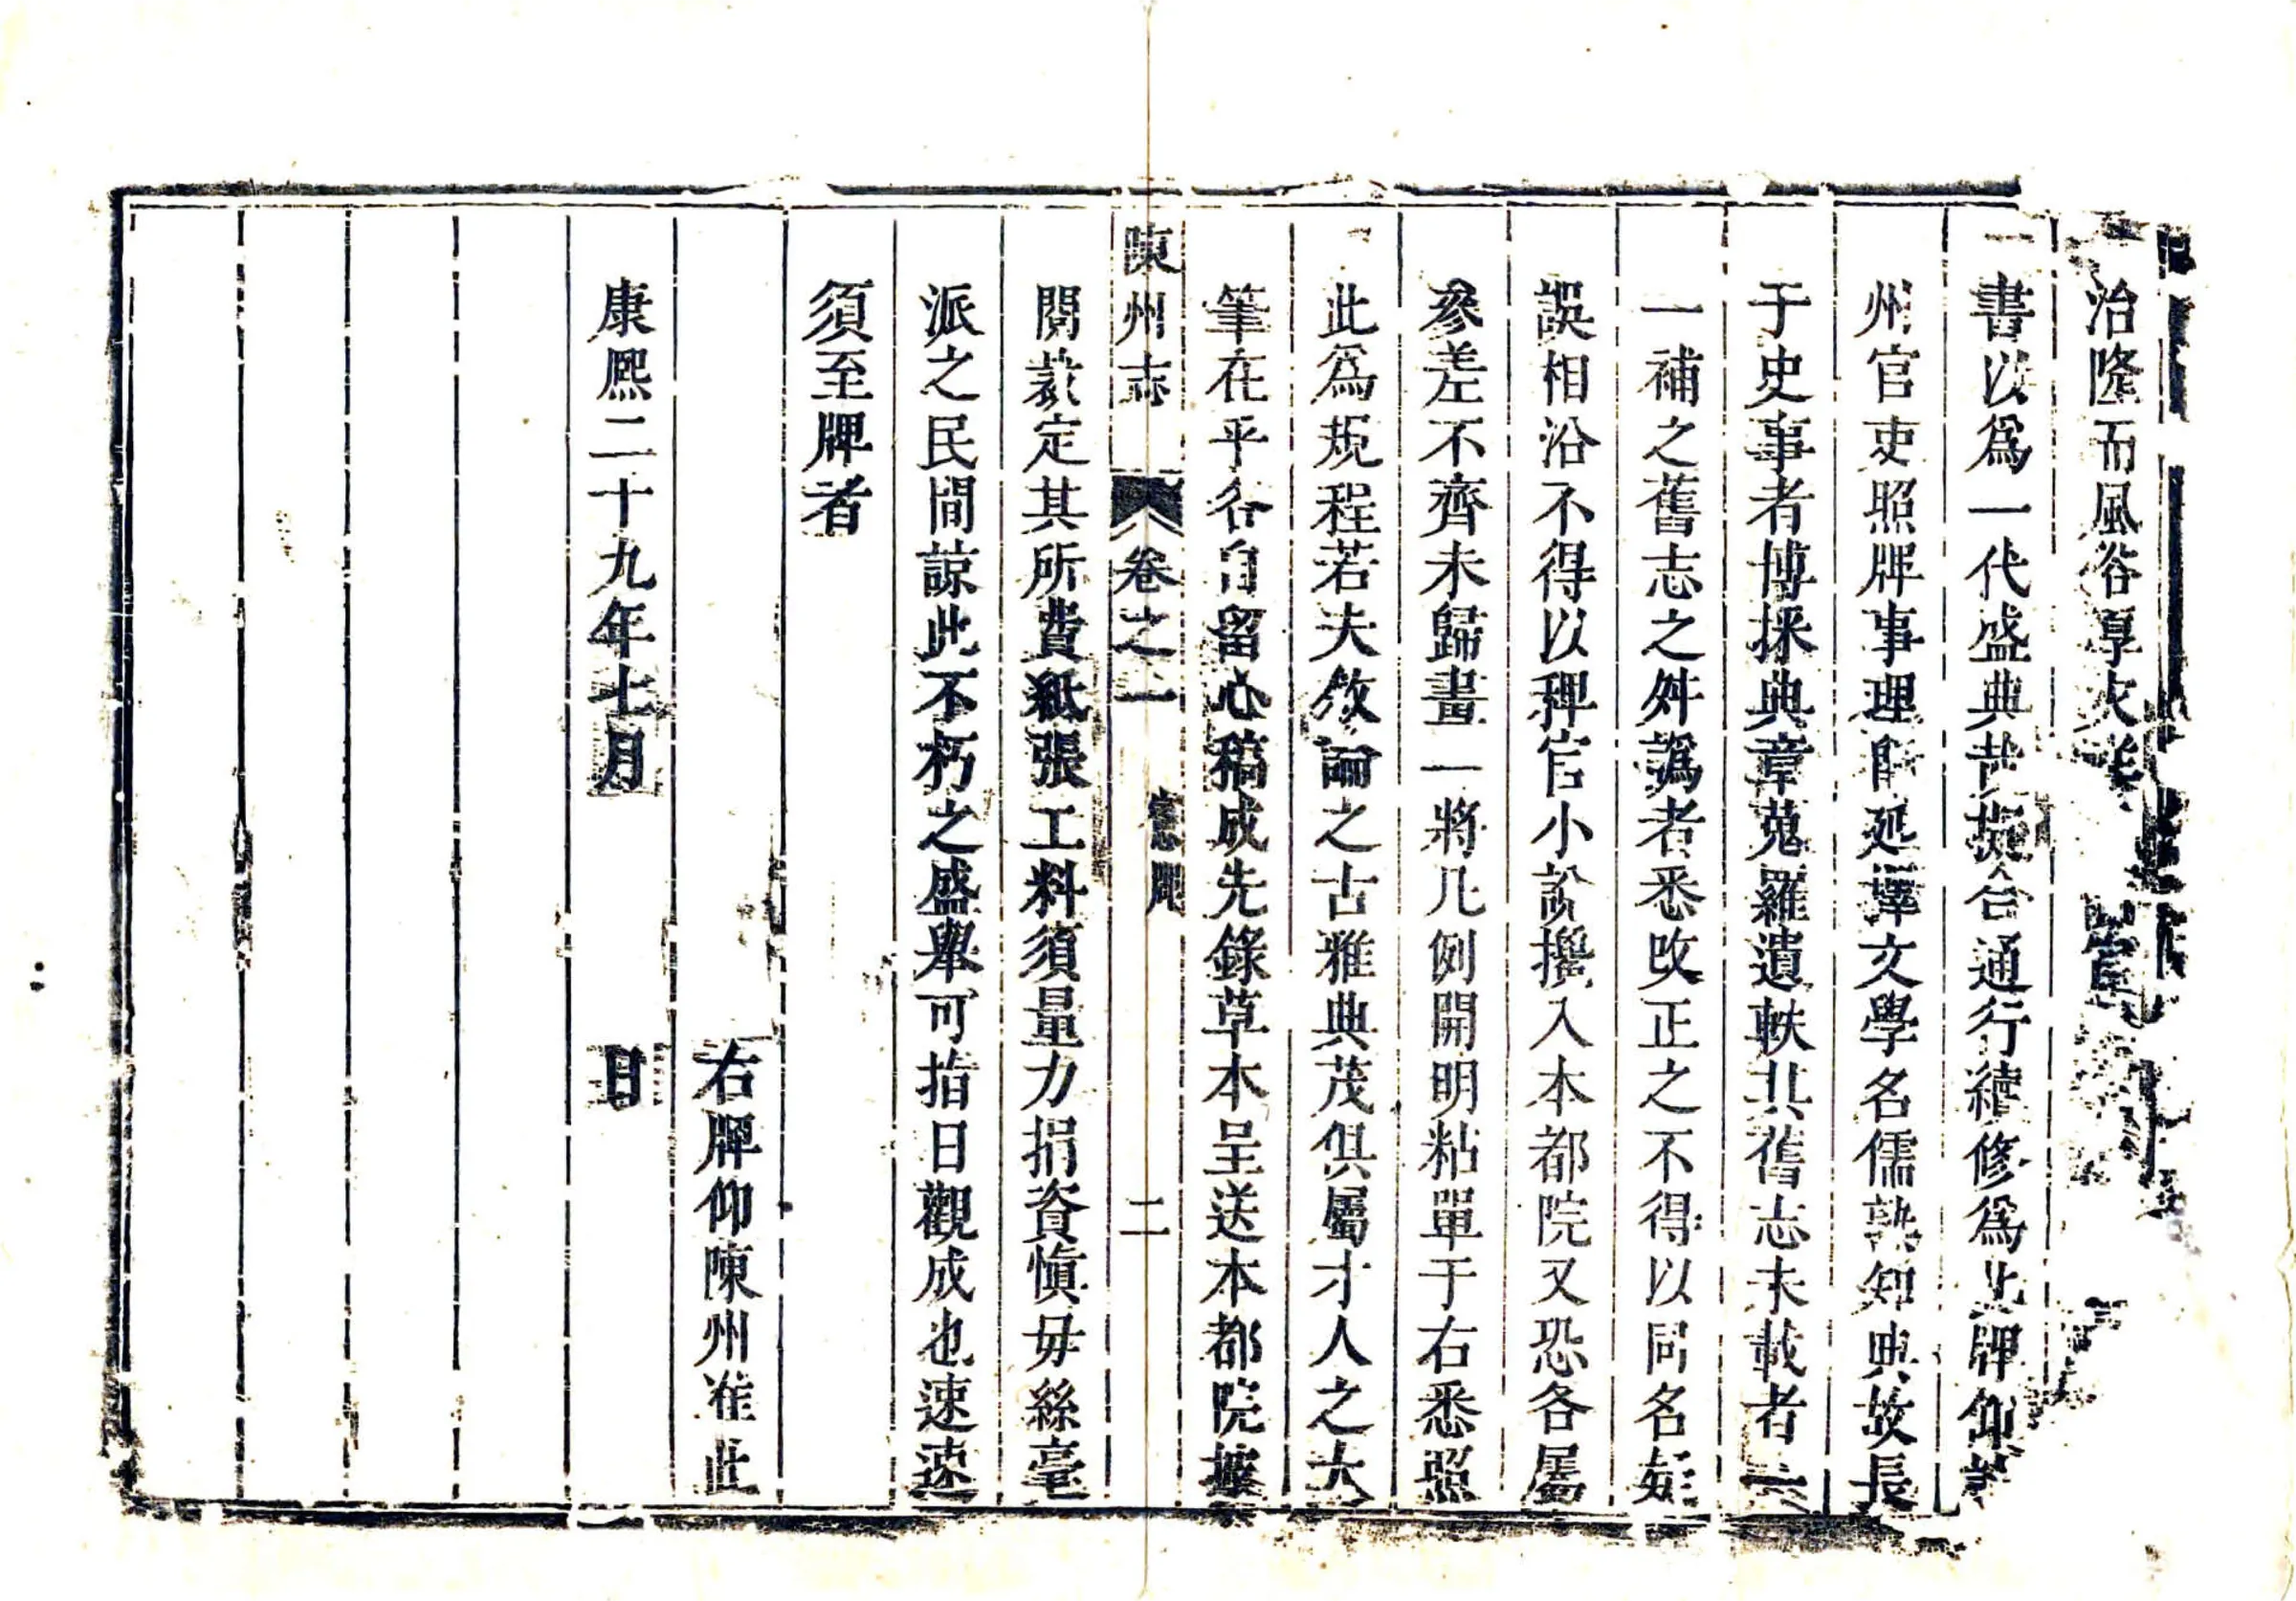 治隆而風俗厚
一書以爲一代盛典 擬合通行續修爲此牌仰
州官吏照牌事理 延擇文學名儒熟知典故長
于史事者博採典章蒐羅遺軼其舊志未載者一
一補之舊志之舛譌者悉改正之不得以同名
誤相沿不得以稗官小說攙入本都院又恐各屬
參差不齊未歸畫一將凡例開明粘單于右悉照
此爲規程若夫敘論之古雅典茂俱屬才人之大
筆在乎各自留心稿成先錄草本呈送本都院據
陳州志 卷之一 憲牌 二
閱裁定其所費紙張工料須量力捐資愼毋絲毫
派之民間諒此不朽之盛舉可指日觀成也速速
須至牌者
右牌仰陳州准此
康熙二十九年七月 日